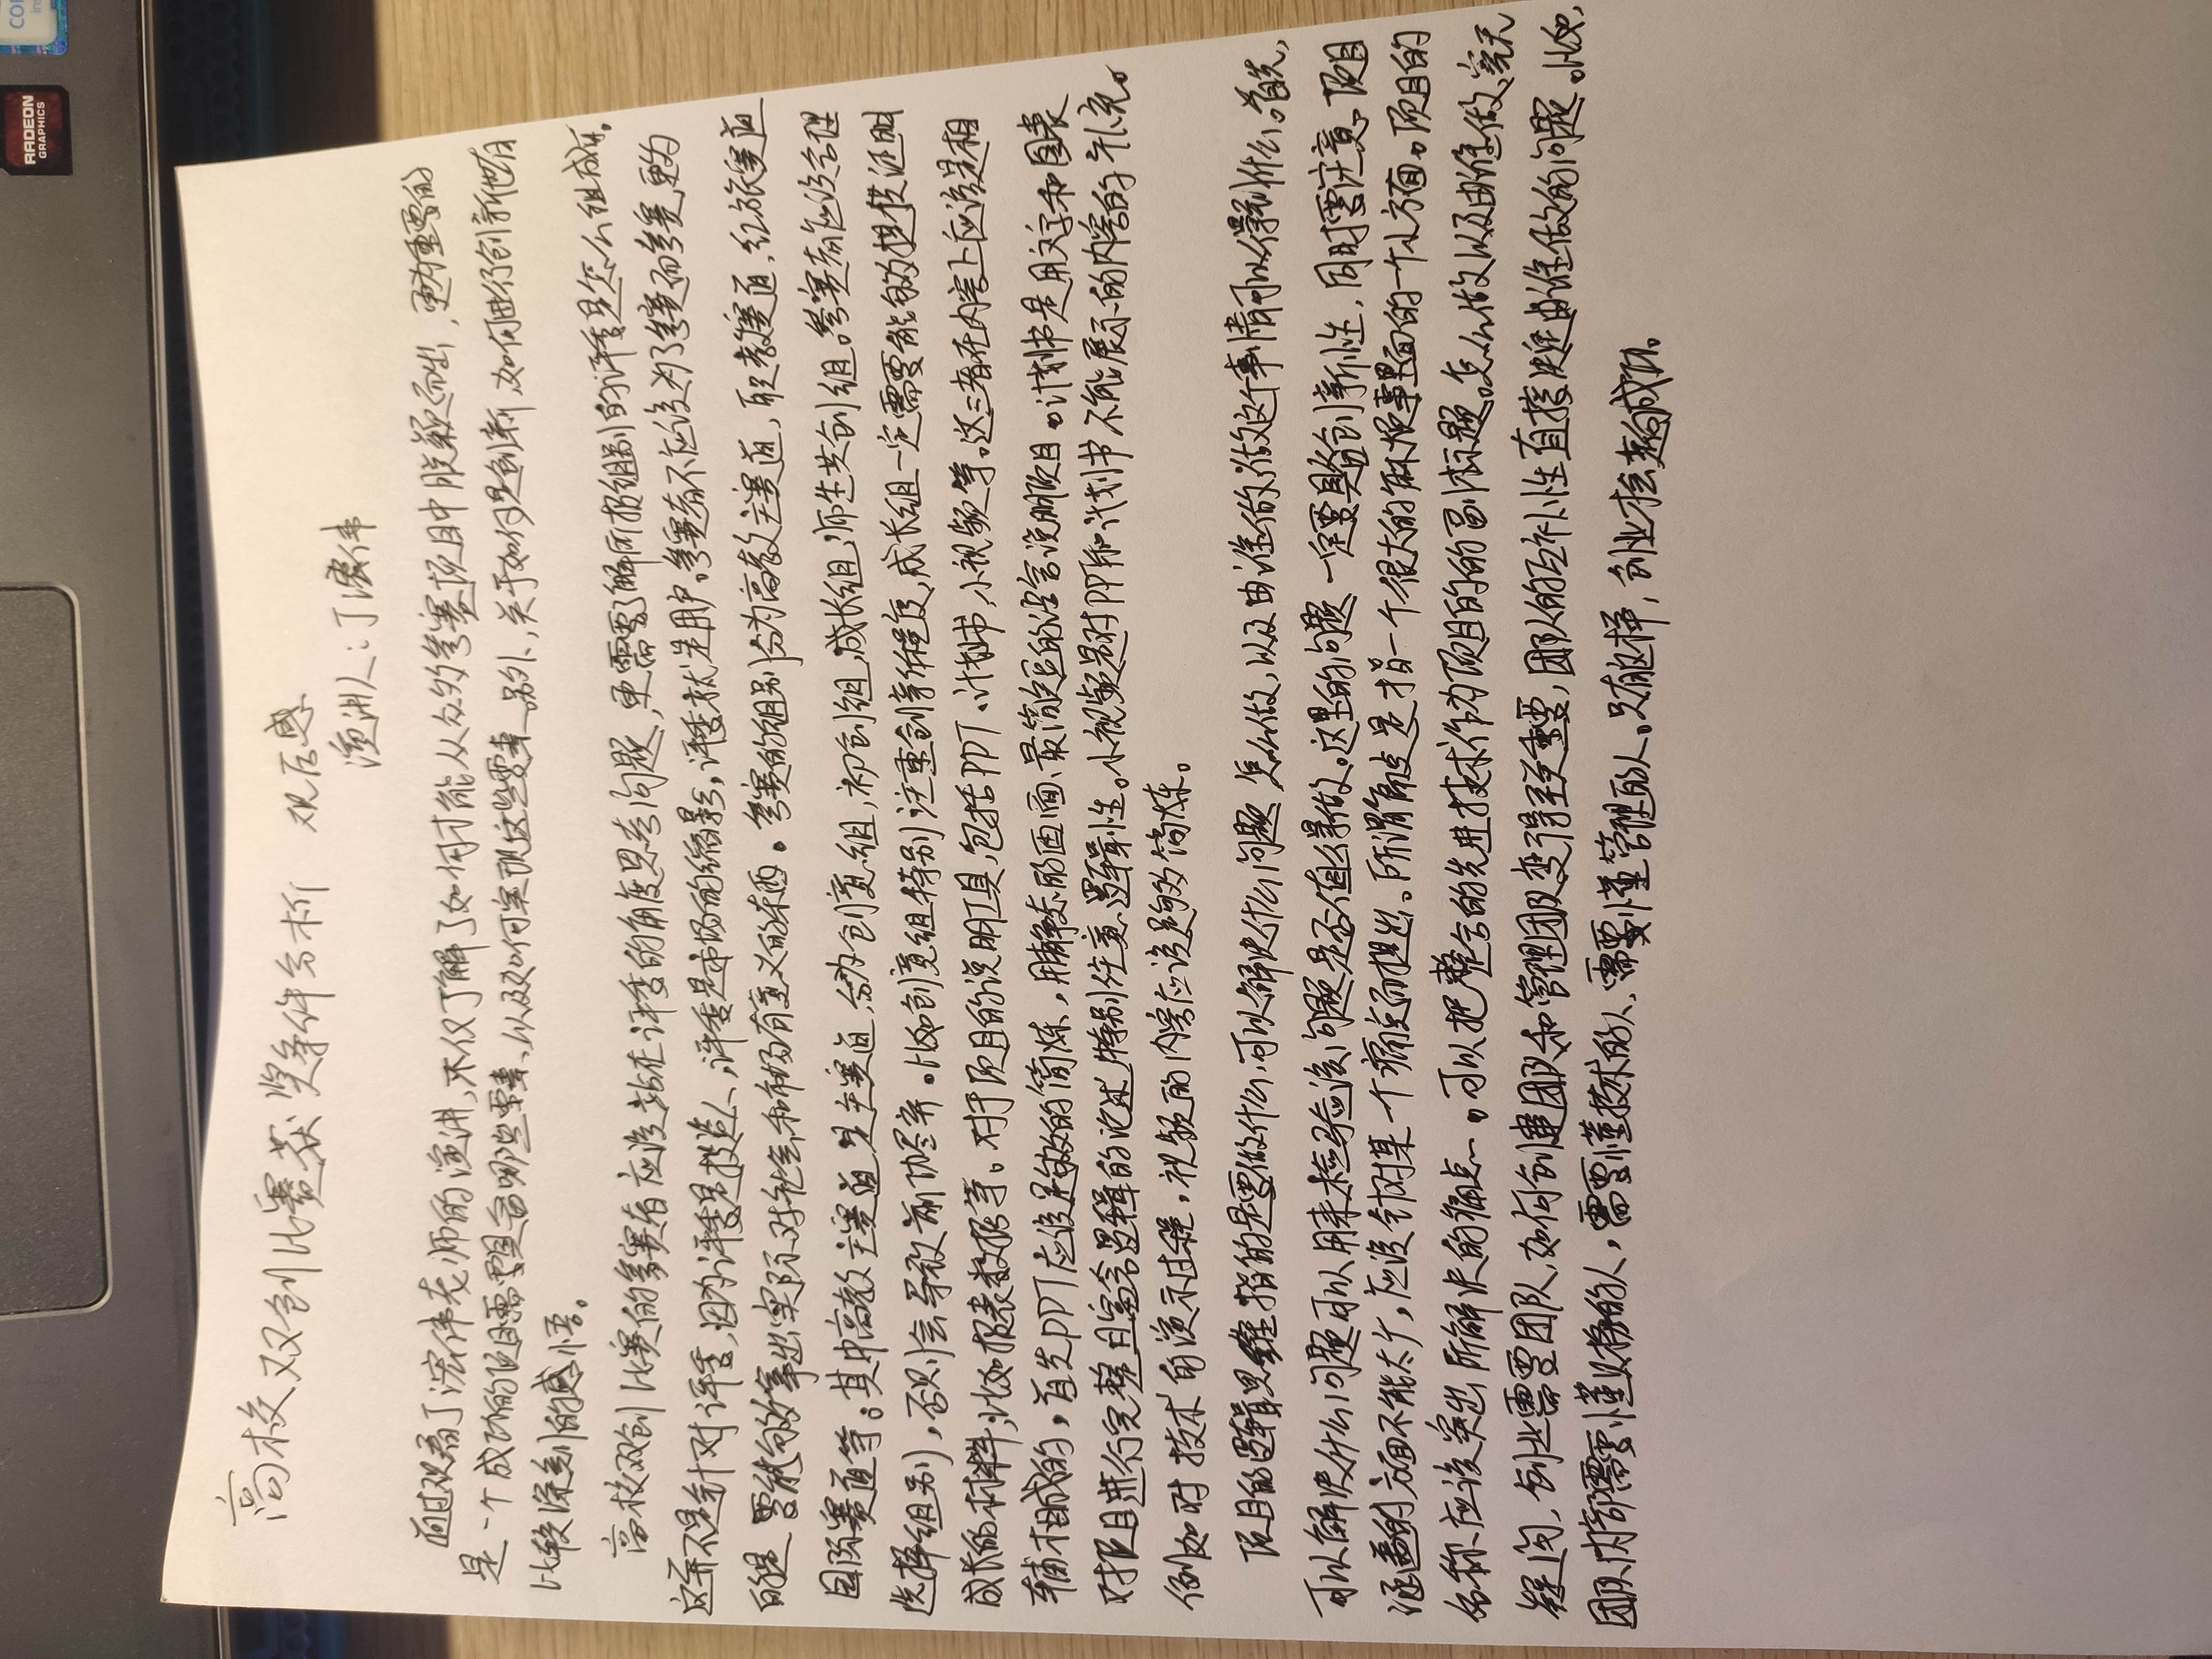 RADEON
GRAPHICS
高校双创比赛获奖条件分析 观后感
演讲人:丁宏伟
通过观看丁宏伟老师的演讲,不仅了解了如何才能从众多参赛项目中脱颖而出,更为重要的
是一个成功的项目需要具备哪些要素、以及如何实现这些要素。另外,关于如何是创新,如何进行创新也有
比较深刻的感悟。
高校双创比赛的参赛者应该站在评委的角度思考问题,更需要了解所报组别的评委是怎么组成的。
这并不是针对评委,因为评委是投资人,评委是市场的缩影,评委就是用户。参赛者不应该为了参赛而参赛,更为
的是要能够拿出实际对社会和市场有意义的东西。参赛的组别分为高教主赛道,职教赛道,红旅赛道
国际赛道等。其中高教主赛道是主赛道,分为创意组,初创组,成长组,师生共创组。参赛者应该合理
选择组别,否则会导致前功尽弃。比如创意组特别注重创新程度,成长组一定需要能够提供证明
成长的材料,比如报表数据等。对于项目的说明工具,包括PPT、计划书,小视频等。这三者在内容上应该是相
辅相成的,首先PPT应该足够的简炼,用静态的画面、最简短的语言说明项目。计划书是用文字和图表
对项目进行完整且富含逻辑的论述,特别注意逻辑性。小视频是对PPT和计划书不能展示的内容的补充。
例如对技术的演示过程,视频的内容应该足够简炼。
项目的逻辑思维指的是要做什么,可以解决什么问题 怎么做,以及由谁做,做这个事情可以得到什么。首先,
可以解决什么问题可以用来检验该问题是否值得做。这里的问题一定要具备创新性,同时要注意项目
涵盖的方面不能太广,应该针对某一个痛点而提出。所谓痛点是指一个很大的麻烦事里面的一个小方面。项目的
名称应该突出所解决的痛点。可以把整合的先进技术作为项目的的副标题。怎么做以及由谁做,毫无
疑问,创业需要团队,如何创建团队和管理团队变得至关重要,团队的互补性直接决定由谁做的问题。比如,
团队内部需要懂财务的人,需要懂技术的人,需要懂管理的人。只有这样,创业才会走向成功。